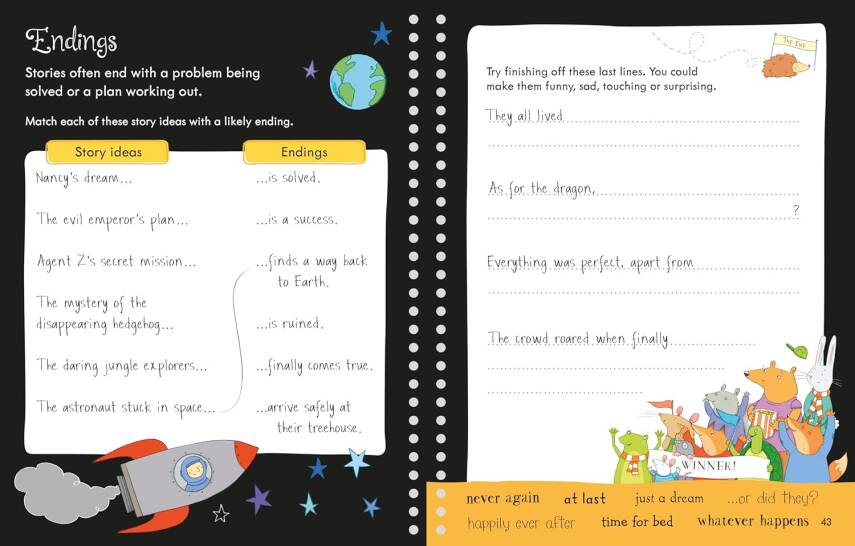 Endings
Stories often end with a problem being
solved or a plan working out.
Match each of these story ideas with a likely ending.
Story ideas
Endings
Nancy's dream...
...is solved.
The evil emperor's plan...
...is a success.
Agent Z's secret mission...
...finds a way back
to Earth.
The mystery of the
disappearing hedgehog...
...is ruined.
The daring jungle explorers...
...finally comes true.
The astronaut stuck in space...
...arrive safely at
their treehouse.
THE END
Try finishing off these last lines. You could
make them funny, sad, touching or surprising.
They all lived
As for the dragon,
?
Everything was perfect, apart from
The crowd roared when finally
WINNER!
never again at last just a dream ...or did they?
happily ever after time for bed whatever happens 43